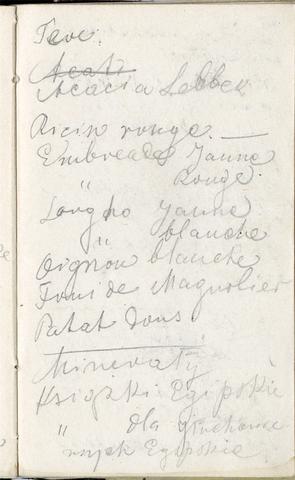 Feve.
Acati
Acacia Lebbek
Ricin rouge. —
Embreades Jaune
" Rouge.
Sorgho Jaune
" blanche
Oignon blanche
de Magnolier
Patat Dous
Mineraty
Książki Egipskie
" dla
Egipskie